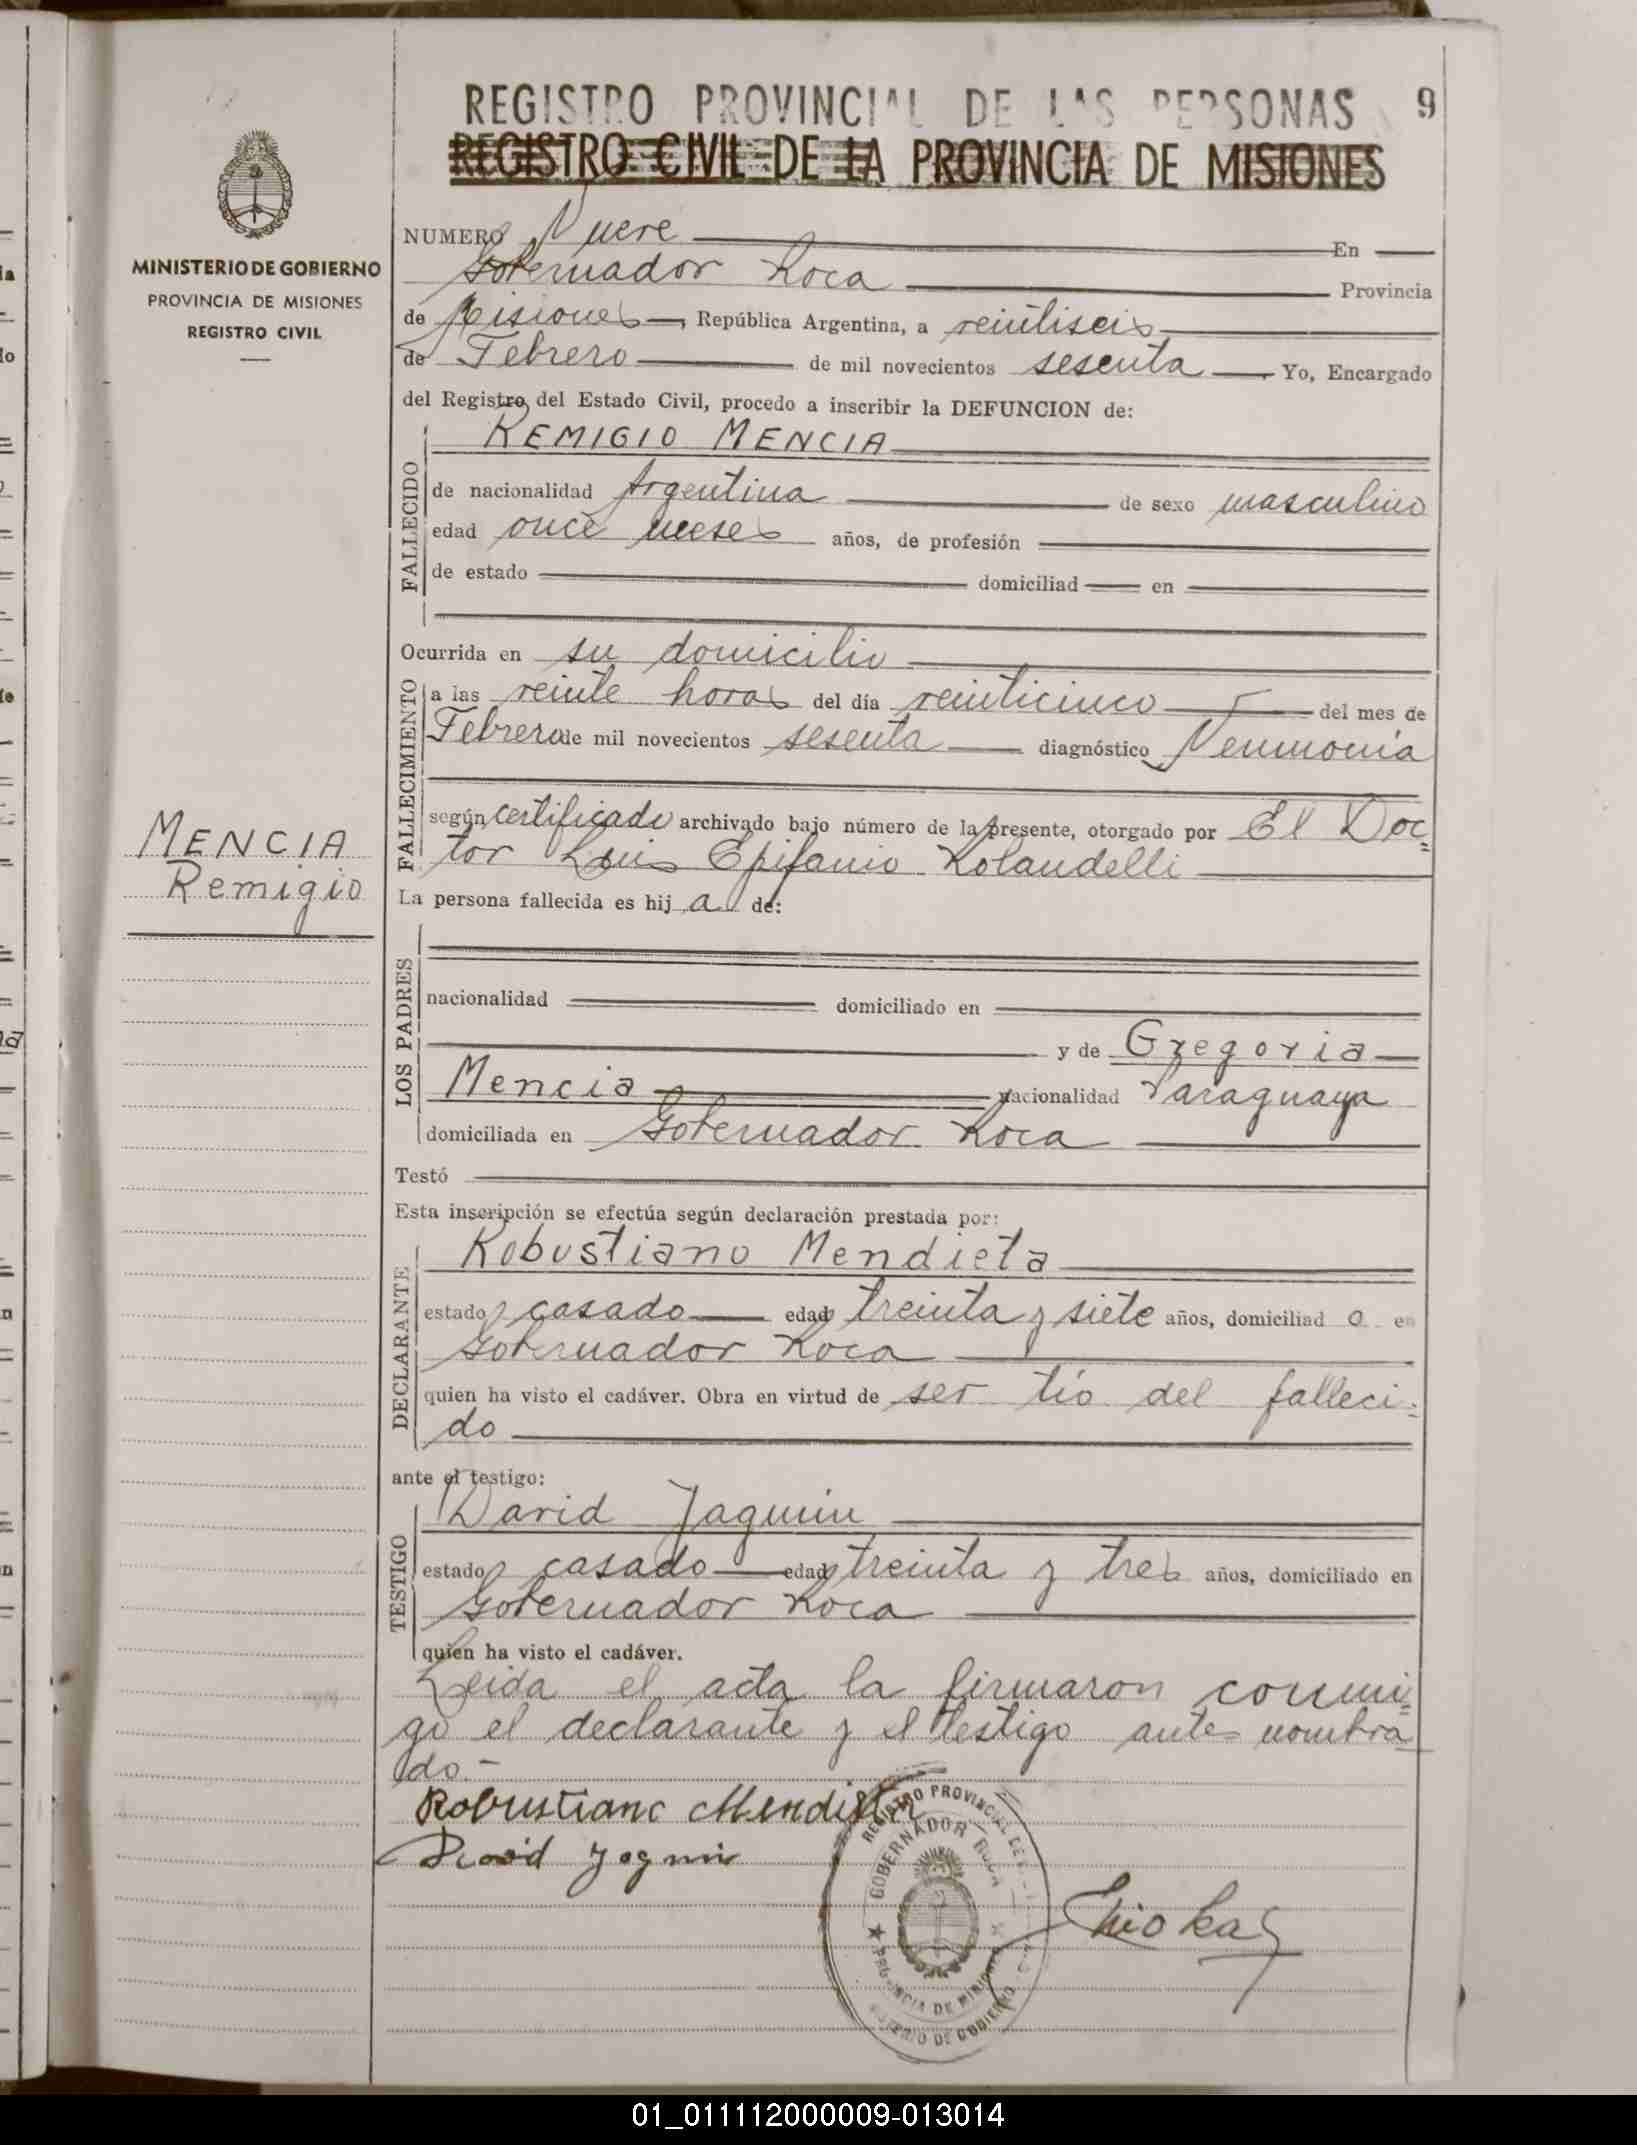 REGISTRO PROVINCIAL DE LAS PERSONAS 9
REGISTRO CIVIL DE LA PROVINCIA DE MISIONES
MINISTERIO DE GOBIERNO
PROVINCIA DE MISIONES
REGISTRO CIVIL
NUMERO Nueve En
Gobernador Roca Provincia
de Misiones, República Argentina, a veintiseis
de Febrero de mil novecientos sesenta Yo, Encargado
del Registro del Estado Civil, procedo a inscribir la DEFUNCION de:
REMIGIO MENCIA
FALLECIDO
de nacionalidad Argentina de sexo masculino
edad once meses años, de profesión
de estado domiciliad en
Ocurrida en su domicilio
FALLECIMIENTO
a las veinte horas del día veinticinco del mes de
Febrero de mil novecientos sesenta diagnóstico Neumonia
según certificado archivado bajo número de la presente, otorgado por El Doc=
tor Luis Epifanio Rolandelli
MENCIA
Remigio
La persona fallecida es hij a de:
LOS PADRES
nacionalidad domiciliado en
y de Gregoria
Mencia nacionalidad Paraguaya
domiciliada en Gobernador Roca
Testó
Esta inscripción se efectúa según declaración prestada por:
Robustiano Mendieta
DECLARANTE
estado casado edad treinta y siete años, domiciliad o en
Gobernador Roca
quien ha visto el cadáver. Obra en virtud de ser tío del falleci=
do
ante el testigo:
David Jaquin
TESTIGO
estado casado edad treinta y tres años, domiciliado en
Gobernador Roca
quien ha visto el cadáver.
Leida el acta la firmaron conmi=
go el declarante y el testigo ante nombra
do.-
Robustiano Mendieta
David
REGISTRO PROVINCIAL DE
GOBERNADOR ROCA
PROVINCIA DE MISIONES
MINISTERIO DE GOBIERNO
01_011112000009-013014